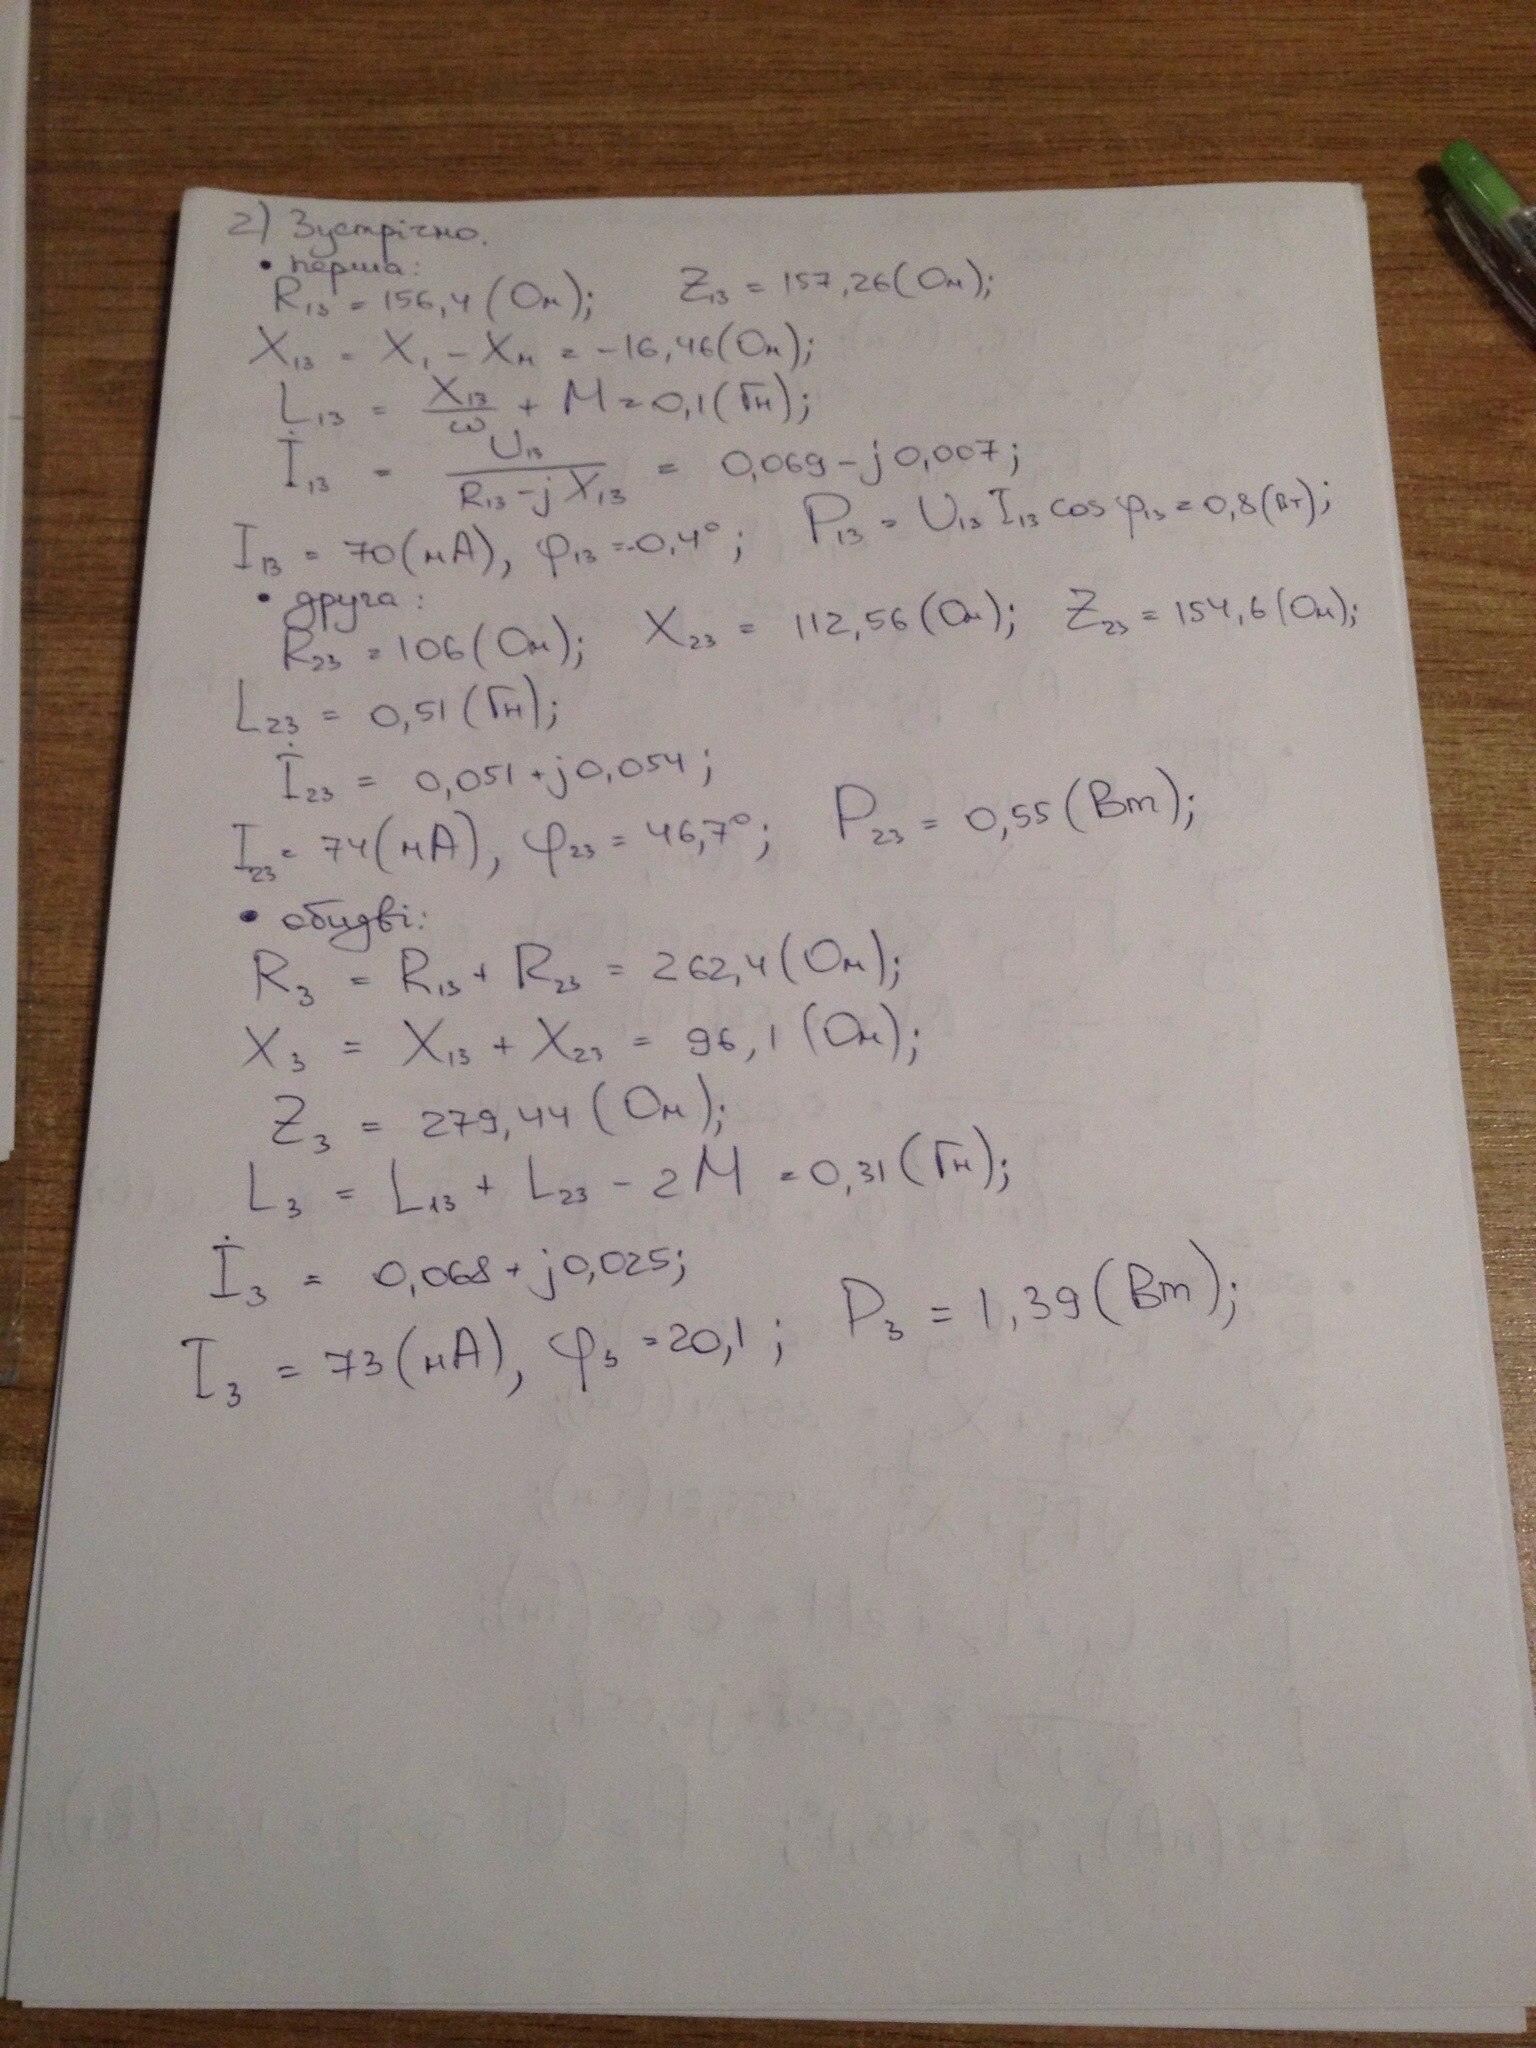 2) Зустрічно.
• перша:
R₁₃ = 156,4 (Ом); Z₁₃ = 157,26 (Ом);
X₁₃ = X₁ - Xм = -16,46 (Ом);
L₁₃ = X₁₃/ω + M = 0,1 (Гн);
İ₁₃ = U₁₃/(R₁₃ - jX₁₃) = 0,069 - j0,007;
I₁₃ = 70 (мА), φ₁₃ = -0,4°; P₁₃ = U₁₃ I₁₃ cos φ₁₃ = 0,8 (Вт);
• друга:
R₂₃ = 106 (Ом); X₂₃ = 112,56 (Ом); Z₂₃ = 154,6 (Ом);
L₂₃ = 0,51 (Гн);
İ₂₃ = 0,051 + j0,054;
I₂₃ = 74 (мА), φ₂₃ = 46,7°; P₂₃ = 0,55 (Вт);
• обидві:
R₃ = R₁₃ + R₂₃ = 262,4 (Ом);
X₃ = X₁₃ + X₂₃ = 96,1 (Ом);
Z₃ = 279,44 (Ом);
L₃ = L₁₃ + L₂₃ - 2M = 0,31 (Гн);
İ₃ = 0,068 + j0,025;
I₃ = 73 (мА), φ₃ = 20,1; P₃ = 1,39 (Вт);